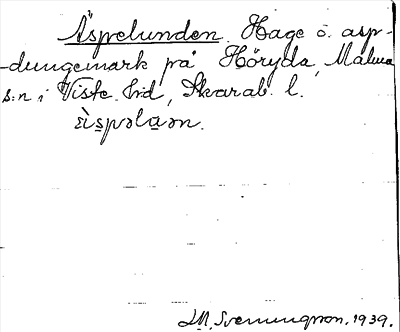 Äspelunden. Hage o. asp-
-dungemark på Höryda, Malma
s:n i Viste hd, Skarab. l.
I.M. Svenningsson, 1939.